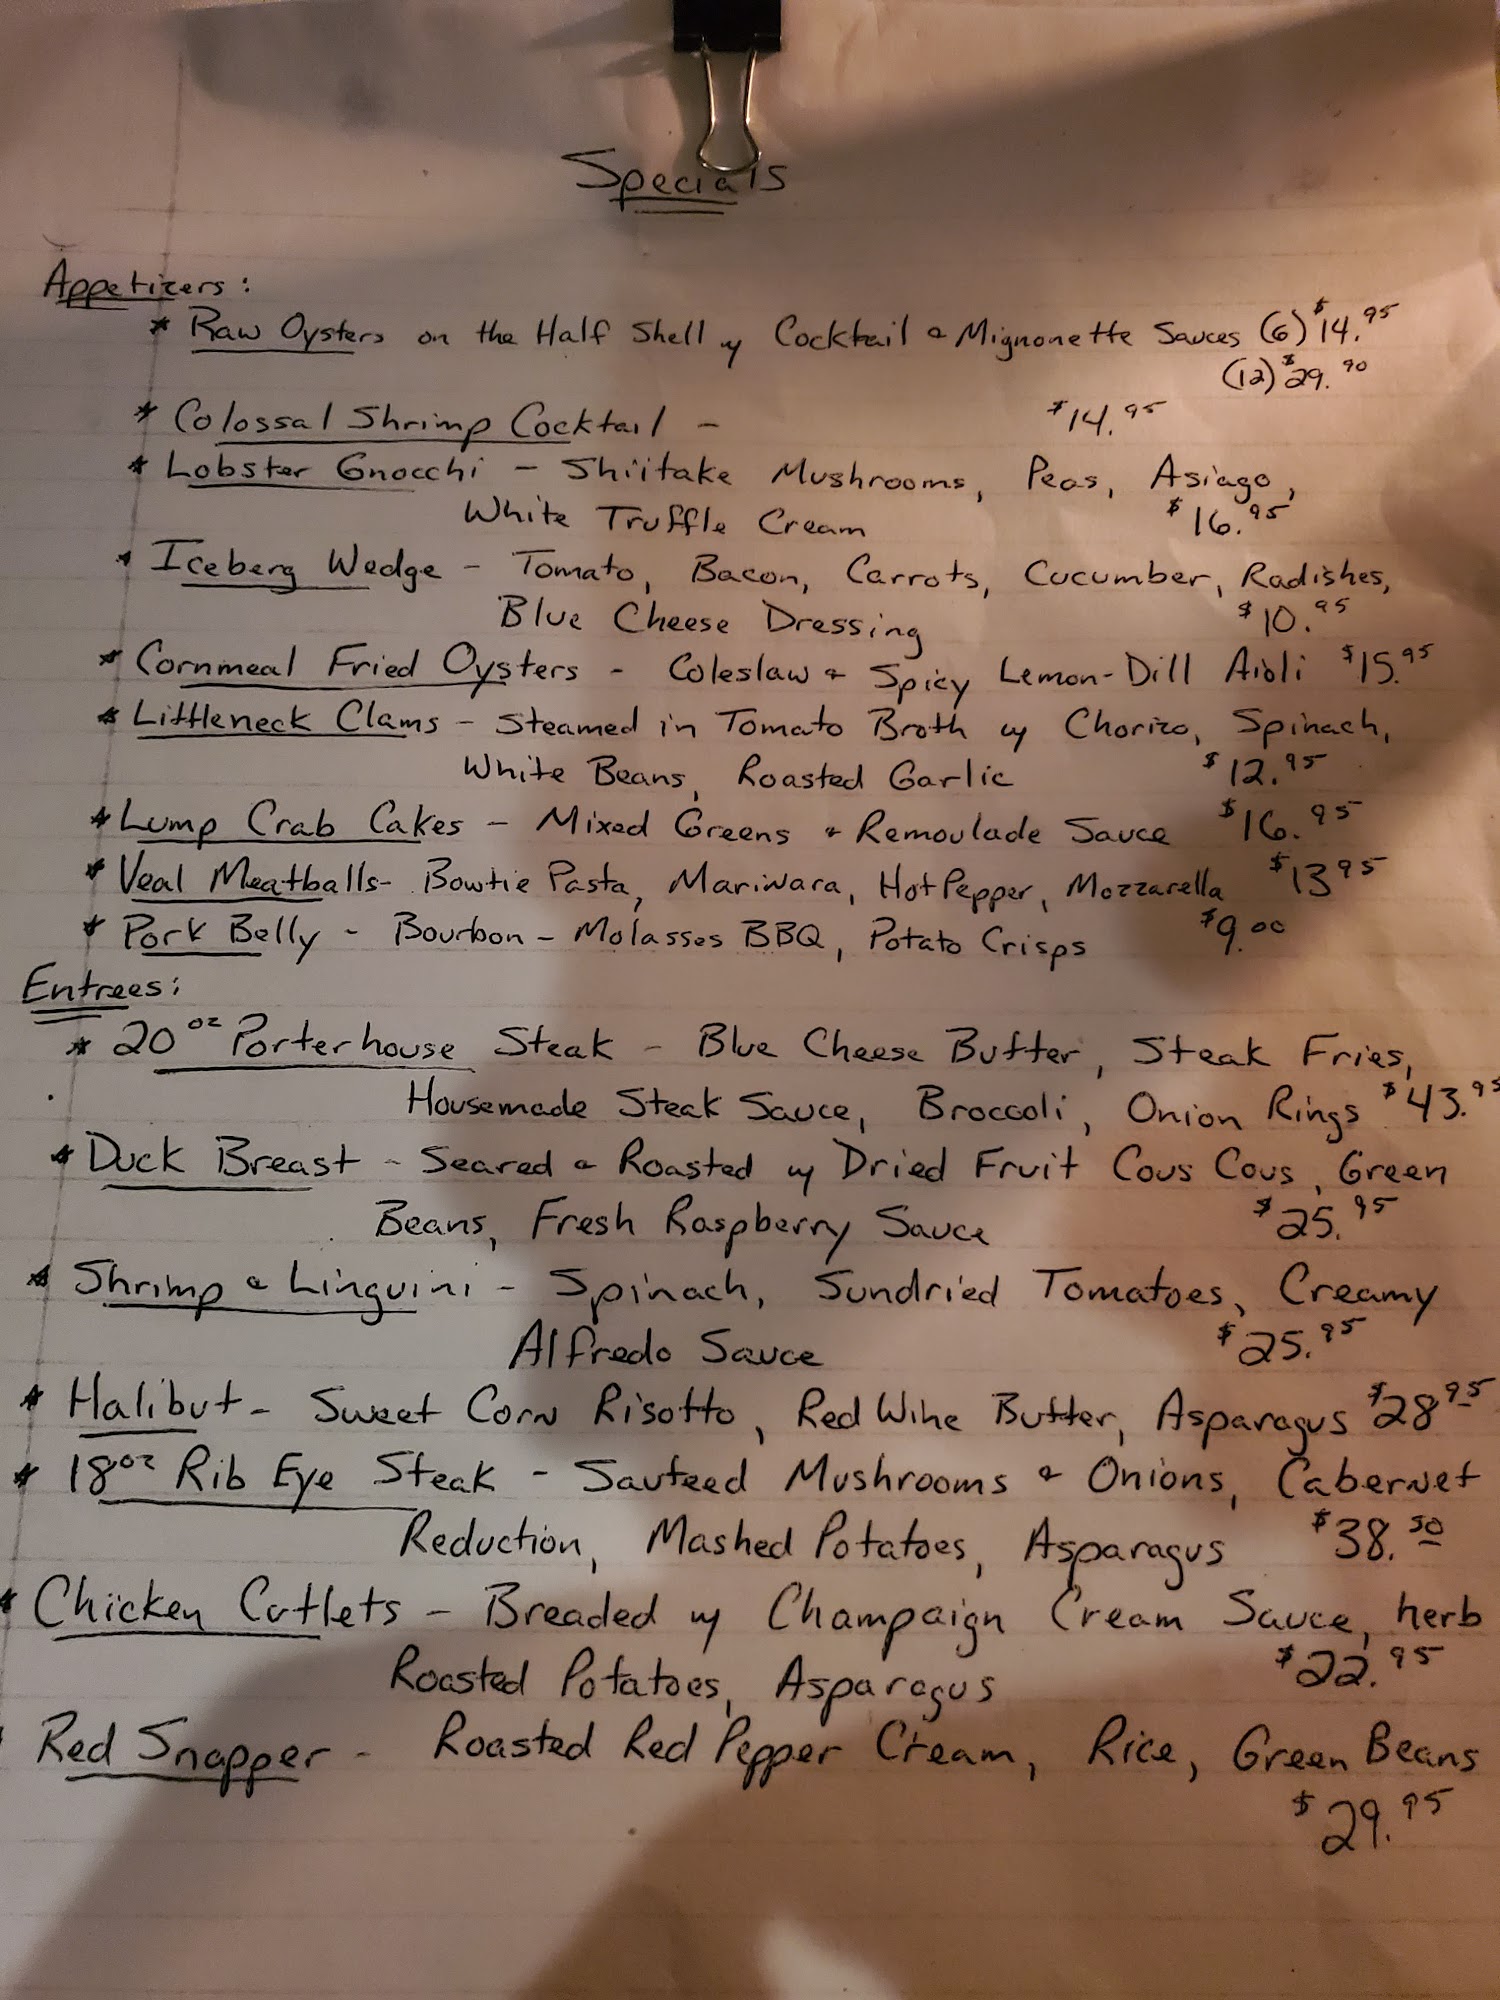 Specials
Appetizers:
* Raw Oysters on the Half Shell w/ Cocktail & Mignonette Sauces (6) $14.95
(12) $29.90
* Colossal Shrimp Cocktail - $14.95
* Lobster Gnocchi - Shiitake Mushrooms, Peas, Asiago,
White Truffle Cream $16.95
* Iceberg Wedge - Tomato, Bacon, Carrots, Cucumber, Radishes,
Blue Cheese Dressing $10.95
* Cornmeal Fried Oysters - Coleslaw & Spicy Lemon-Dill Aioli $15.95
* Littleneck Clams - Steamed in Tomato Broth w/ Chorizo, Spinach,
White Beans, Roasted Garlic $12.95
* Lump Crab Cakes - Mixed Greens & Remoulade Sauce $16.95
* Veal Meatballs - Bowtie Pasta, Marinara, Hot Pepper, Mozzarella $13.95
* Pork Belly - Bourbon-Molasses BBQ, Potato Crisps $9.00
Entrees:
* 20oz Porterhouse Steak - Blue Cheese Butter, Steak Fries,
Housemade Steak Sauce, Broccoli, Onion Rings $43.95
* Duck Breast - Seared & Roasted w/ Dried Fruit Cous Cous, Green
Beans, Fresh Raspberry Sauce $25.95
* Shrimp & Linguini - Spinach, Sundried Tomatoes, Creamy
Alfredo Sauce $25.95
* Halibut - Sweet Corn Risotto, Red Wine Butter, Asparagus $28.95
* 18oz Rib Eye Steak - Sauteed Mushrooms & Onions, Cabernet
Reduction, Mashed Potatoes, Asparagus $38.50
* Chicken Cutlets - Breaded w/ Champaign Cream Sauce, herb
Roasted Potatoes, Asparagus $22.95
Red Snapper - Roasted Red Pepper Cream, Rice, Green Beans
$29.95